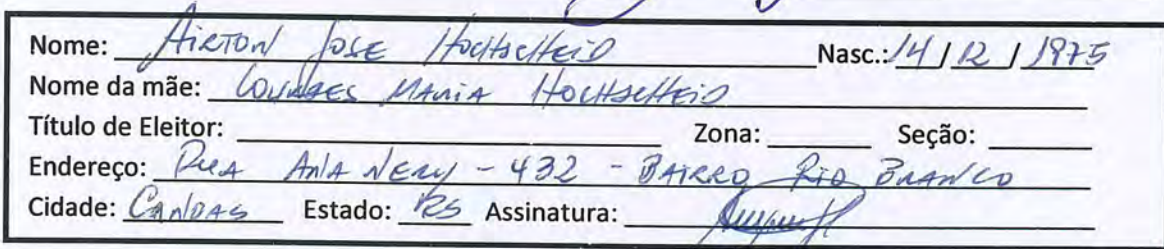 Nome: AIRTON JOSE HOCHSCHEID Nasc.: 14 / 12 / 1975
Nome da mãe: LOURDES MARIA HOCHSCHEID
Título de Eleitor: Zona: Seção:
Endereço: RUA ANA NERY - 432 - BAIRRO RIO BRANCO
Cidade: CANOAS Estado: RS Assinatura: